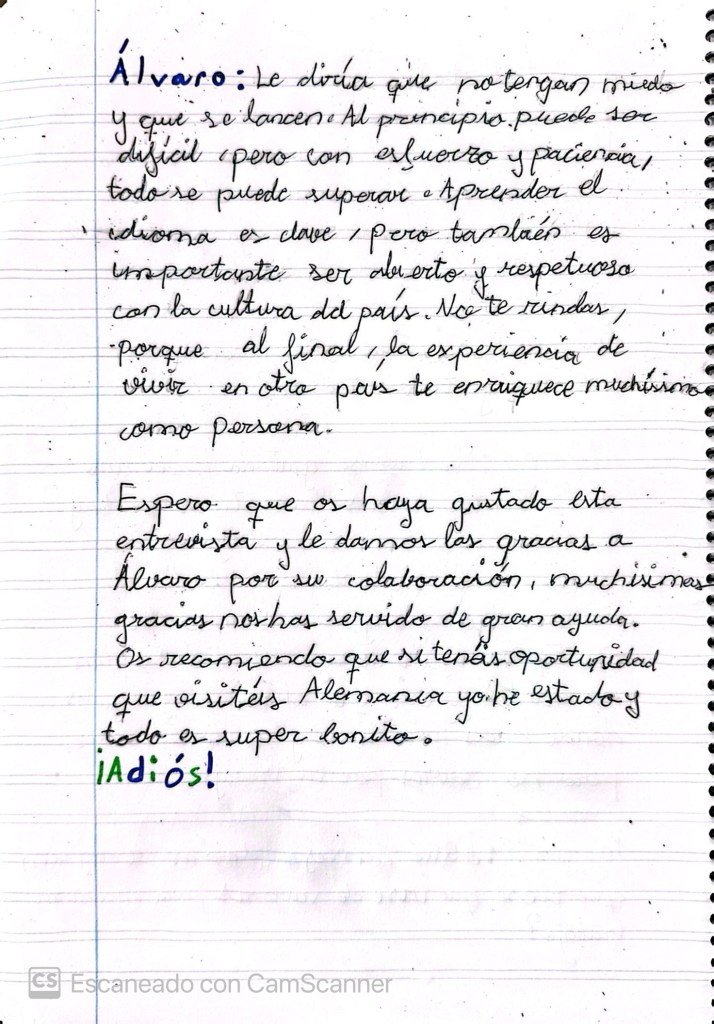 Álvaro: Le diría que no tengan miedo
y que se lancen. Al principio puede ser
difícil, pero con esfuerzo y paciencia,
todo se puede superar. Aprender el
idioma es clave, pero también es
importante ser abierto y respetuoso
con la cultura del país. No te rindas,
porque al final, la experiencia de
vivir en otro país te enriquece muchísimo
como persona.
Espero que os haya gustado esta
entrevista y le damos las gracias a
Álvaro por su colaboración, muchísimas
gracias nos has servido de gran ayuda.
Os recomiendo que si tenéis oportunidad
que visitéis Alemania yo he estado y
todo es super bonito.
¡Adiós!
CS Escaneado con CamScanner